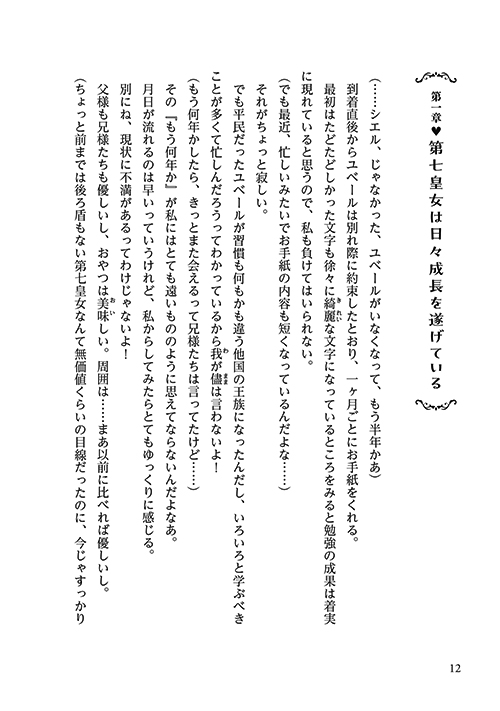 第一章♥第七皇女は日々成長を遂げている
(……シエル、じゃなかった、ユベールがいなくなって、もう半年かあ)
到着直後からユベールは別れ際に約束したとおり、一ヶ月ごとにお手紙をくれる。
最初はたどたどしかった文字も徐々に綺麗な文字になっているところをみると勉強の成果は着実
に現れていると思うので、私も負けてはいられない。
(でも最近、忙しいみたいでお手紙の内容も短くなっているんだよな……)
それがちょっと寂しい。
でも平民だったユベールが習慣も何もかも違う他国の王族になったんだし、いろいろと学ぶべき
ことが多くて忙しんだろうってわかっているから我が儘は言わないよ!
(もう何年かしたら、きっとまた会えるって兄様たちは言ってたけど……)
その『もう何年か』が私にはとても遠いもののように思えてならないんだよなあ。
月日が流れるのは早いっていうけれど、私からしてみたらとてもゆっくりに感じる。
別にね、現状に不満があるってわけじゃないよ!
父様も兄様たちも優しいし、おやつは美味しい。周囲は……まあ以前に比べれば優しいし。
(ちょっと前までは後ろ盾もない第七皇女なんて無価値くらいの目線だったのに、今じゃすっかり
12